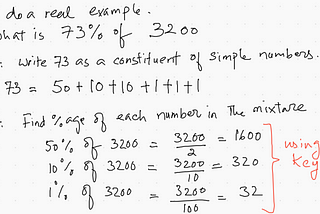 do a real example.
hat is 73% of 3200
. Write 73 as a constituent of simple numbers.
73 = 50 + 10 + 10 + 1 + 1 + 1
. Find % age of each number in the mixture
50% of 3200 = 3200/2 = 1600
10% of 3200 = 3200/10 = 320
1% of 3200 = 3200/100 = 32
using
key